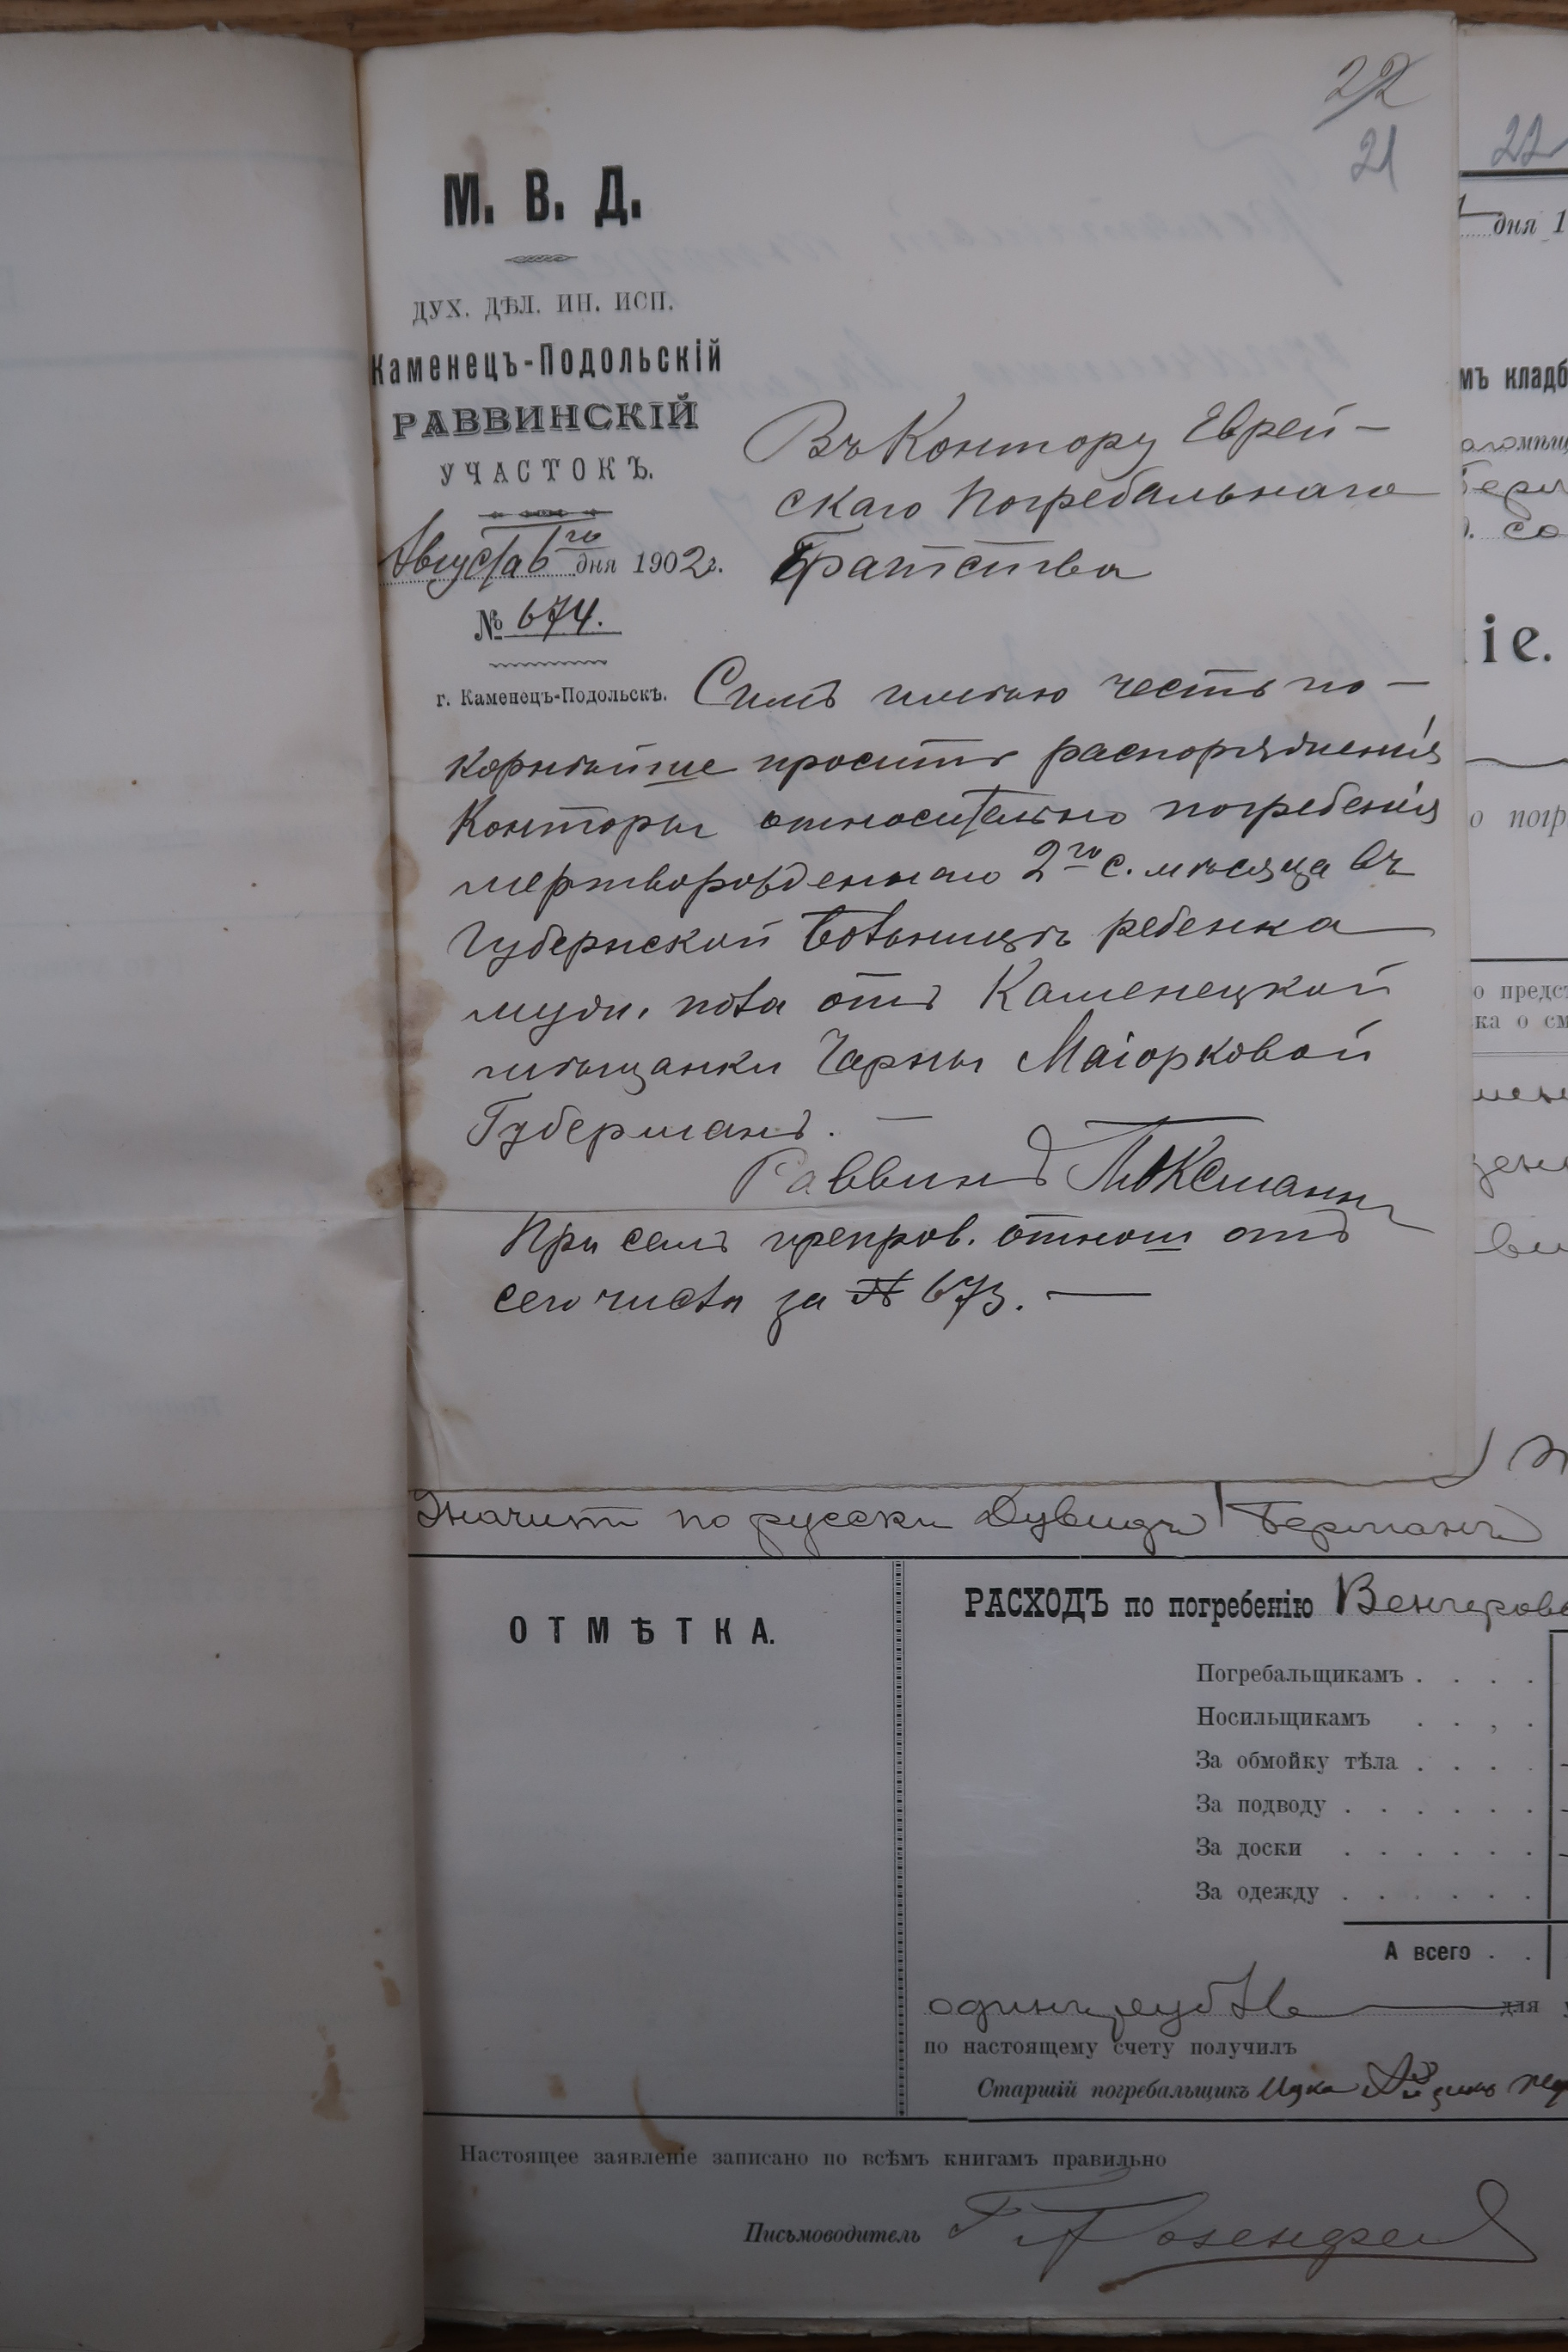 22
21
М. В. Д.
ДУХ. ДѢЛ. ИН. ИСП.
Каменецъ-Подольскій
РАВВИНСКІЙ
УЧАСТОКЪ.
Августа 6го дня 1902 г.
№ 674.
г. Каменецъ-Подольскъ.
Въ Контору Еврей-
скаго Погребальнаго
Братства
Симъ имѣю честь по-
корнѣйше просить распоряженія
Конторы относительно погребенія
мертворожденнаго 2го с. мѣсяца въ
Губернской больницѣ ребенка
муж. пола отъ Каменецкой
мѣщанки Чарны Маіорковой
Губерманъ. —
Раввинъ
При семъ препров. отнош отъ
сего числа за № 673. —
22
дня 1
мъ кладб
іе.
о погр
о предст
ка о см
Значитъ по русски Дувидъ Берманъ
ОТМѢТКА.
РАСХОДЪ по погребенію Венгерова
Погребальщикамъ . . . .
Носильщикамъ . . , .
За обмойку тѣла . . . .
За подводу . . . . . .
За доски . . . . . .
За одежду . . . . . .
А всего . .
одинъ рубль — для
по настоящему счету получилъ
Старшій погребальщикъ Ицко
Настоящее заявленіе записано по всѣмъ книгамъ правильно
Письмоводитель Розенфел